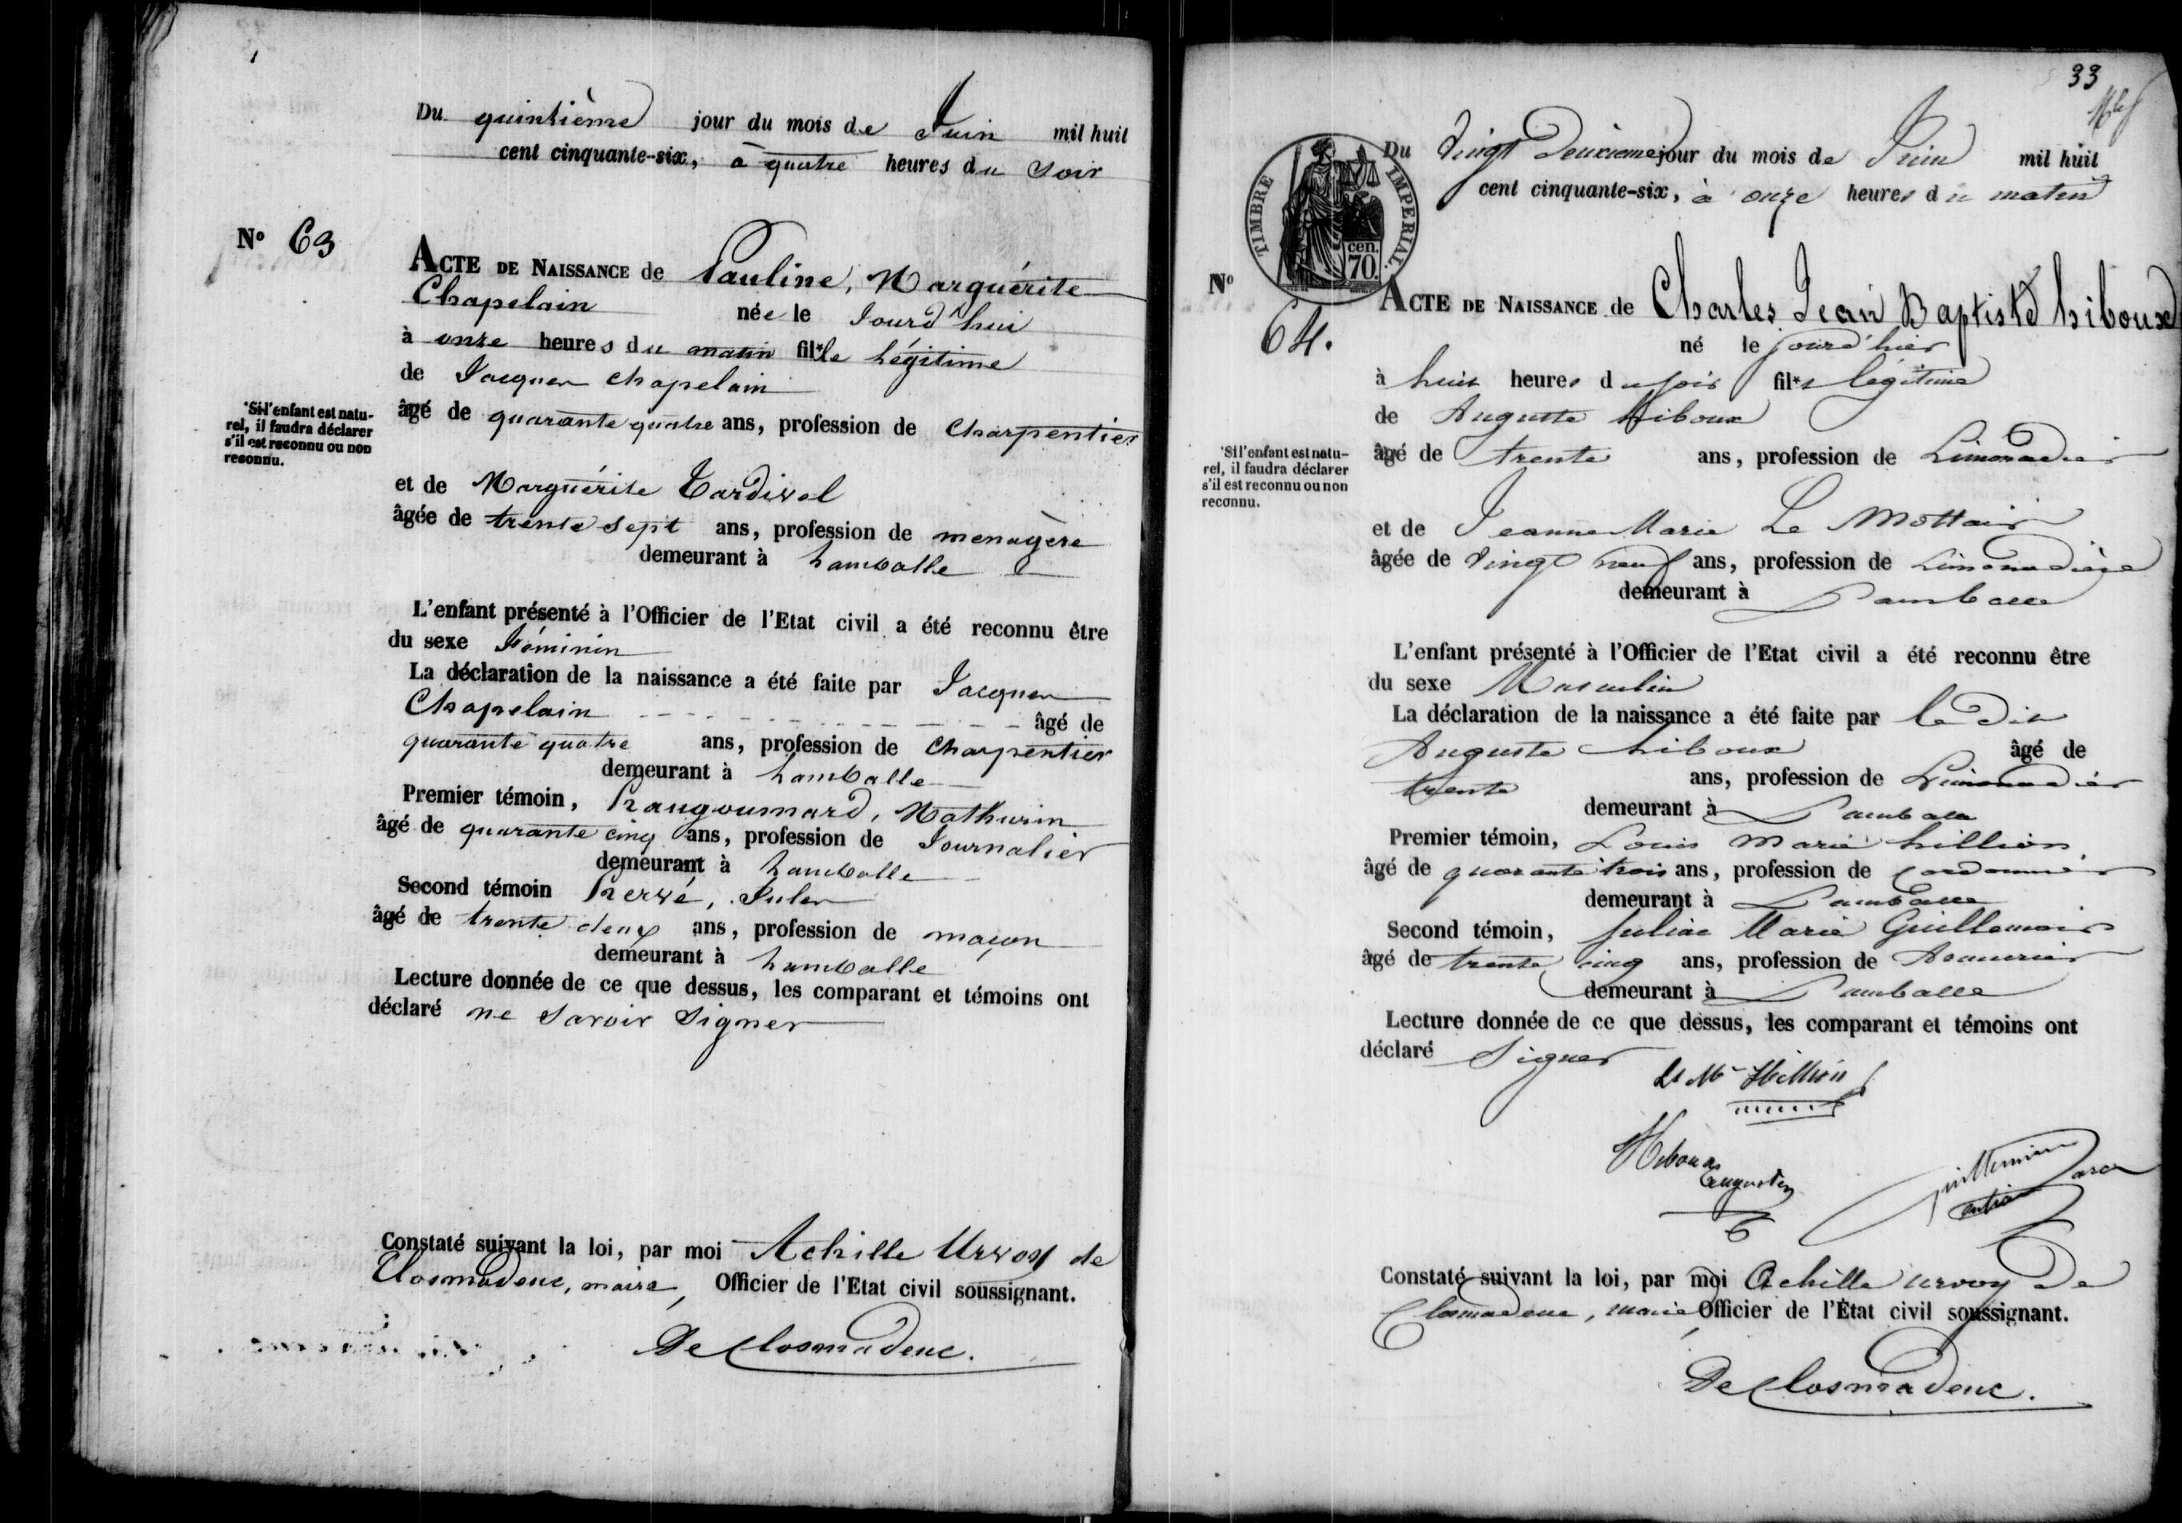 Du quintième jour du mois de Juin mil huit
cent cinquante-six, à quatre heures du soir
N° 63
ACTE DE NAISSANCE de Pauline, Marguérite
Chapelain née le Jourd'hui
à onze heures du matin fil*le légitime
de Jacques Chapelain
*Si l'enfant est natu-
rel, il faudra déclarer
s'il est reconnu ou non
reconnu.
âgé de quarante quatre ans, profession de Charpentier
et de Marguérite Tardivel
âgée de trente sept ans, profession de menagère
demeurant à Lamballe
L'enfant présenté à l'Officier de l'Etat civil a été reconnu être
du sexe Féminin
La déclaration de la naissance a été faite par Jacques
Chapelain âgé de
quarante quatre ans, profession de Charpentier
demeurant à Lamballe
Premier témoin, Langoumard, Mathurin
âgé de quarante cinq ans, profession de Journalier
demeurant à Lamballe
Second témoin Hervé, Jules
âgé de trente deux ans, profession de maçon
demeurant à Lamballe
Lecture donnée de ce que dessus, les comparant et témoins ont
déclaré ne savoir signer
Constaté suivant la loi, par moi Achille Urvoy de
Closmadeuc, maire, Officier de l'Etat civil soussignant.
De Closmadeuc.
33
TIMBRE IMPERIAL
cen.
70.
Du Vingt Deuxième jour du mois de Juin mil huit
cent cinquante-six, à onze heures du matin
N°
64.
ACTE DE NAISSANCE de Charles Jean Baptiste hiboux
né le jourd'hier
à huit heures du soir fil*s légitime
de Auguste hiboux
*Si l'enfant est natu-
rel, il faudra déclarer
s'il est reconnu ou non
reconnu.
âgé de trente ans, profession de Limonadier
et de Jeanne Marie Le Mottais
âgée de Vingt neuf ans, profession de Limonadière
demeurant à Lamballe
L'enfant présenté à l'Officier de l'Etat civil a été reconnu être
du sexe Masculin
La déclaration de la naissance a été faite par le dit
Auguste hiboux âgé de
trente ans, profession de Limonadier
demeurant à Lamballe
Premier témoin, Louis Marie hillion
âgé de quarante trois ans, profession de cordonnier
demeurant à Lamballe
Second témoin, Julien Marie Guillemoir
âgé de trente cinq ans, profession de
demeurant à Lamballe
Lecture donnée de ce que dessus, les comparant et témoins ont
déclaré Signer
Ls Me Hillion
Hiboux
Augustin
Constaté suivant la loi, par moi Achille urvoy De
Closmadeuc, maire, Officier de l'État civil soussignant.
De Closmadeuc.